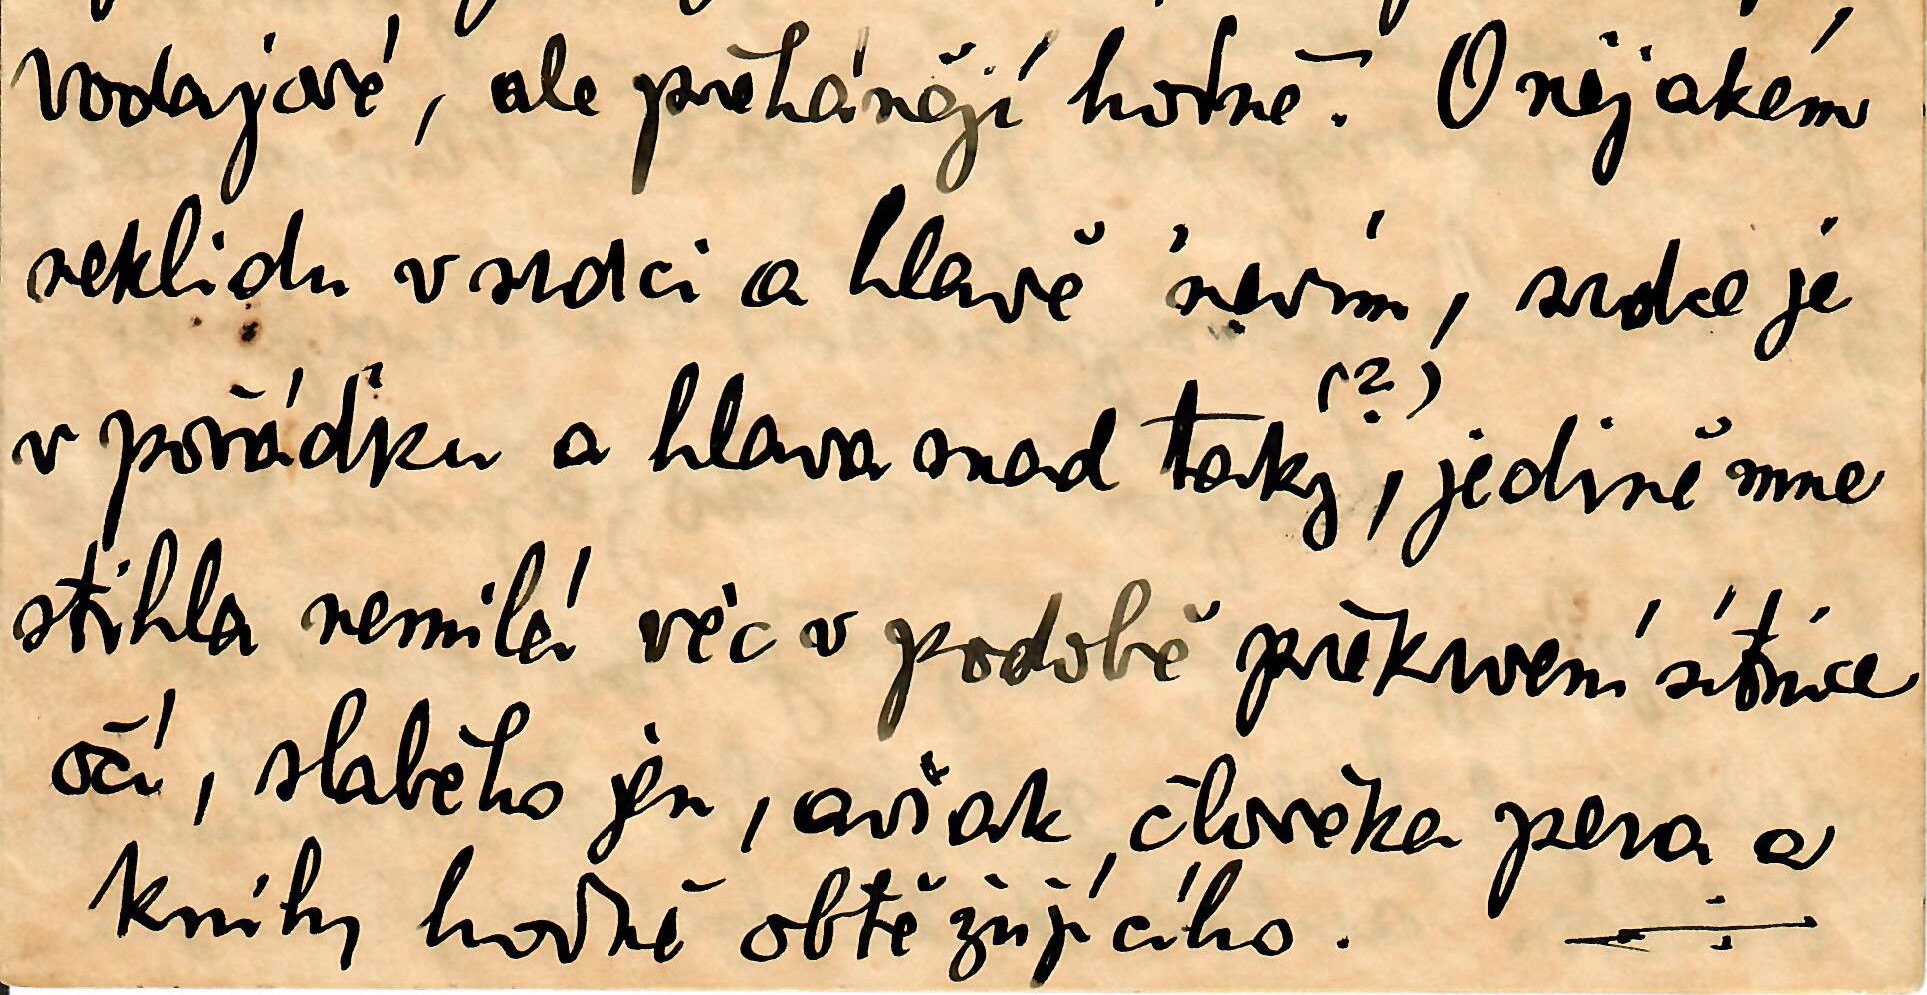 vodajové, ale přehánějí hodně. O nějakém
neklidu v srdci a hlavě nevím, srdce je
v pořádku a hlava snad taky (?), jedině mne
stihla nemilá věc v podobě překrvení sítnice
očí, slabého jen, avšak člověka pera a
knihy hodně obtěžujícího.